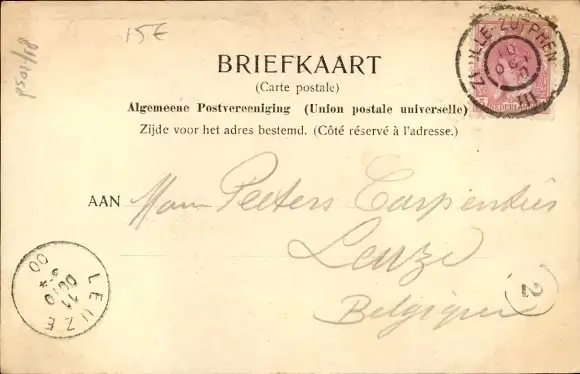 15€
BRIEFKAART
(Carte postale)
Algemeene Postvereeniging (Union postale universelle)
Zijde voor het adres bestemd. (Côté réservé à l'adresse.)
AAN Peeters Carpentier
Leuze
Belgique
ZWOLLE-ZUTPHEN
OCT
III
NEDERLAND
LEUZE
11
OCTO
00
2